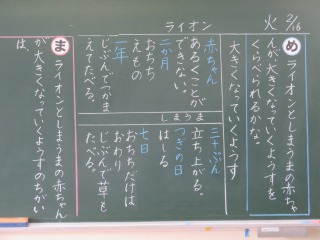 2/16
火
め
ライオンとしまうまの赤ちゃ
んが大きくなっていくようすを
くらべられるかな。
大きくなっていくようす
ライオン
赤ちゃん
あるくことが
できない。
二か月
おちち
えもの
一年
じぶんでつかま
えてたべる。
しまうま
三十ぷん
立ち上がる。
つぎの日
はしる
おちちだけは
七日
おわり
じぶんで草も
たべる。
ま
ライオンとしまうまの赤ちゃん
が大きくなっていくようすのちがい
は、